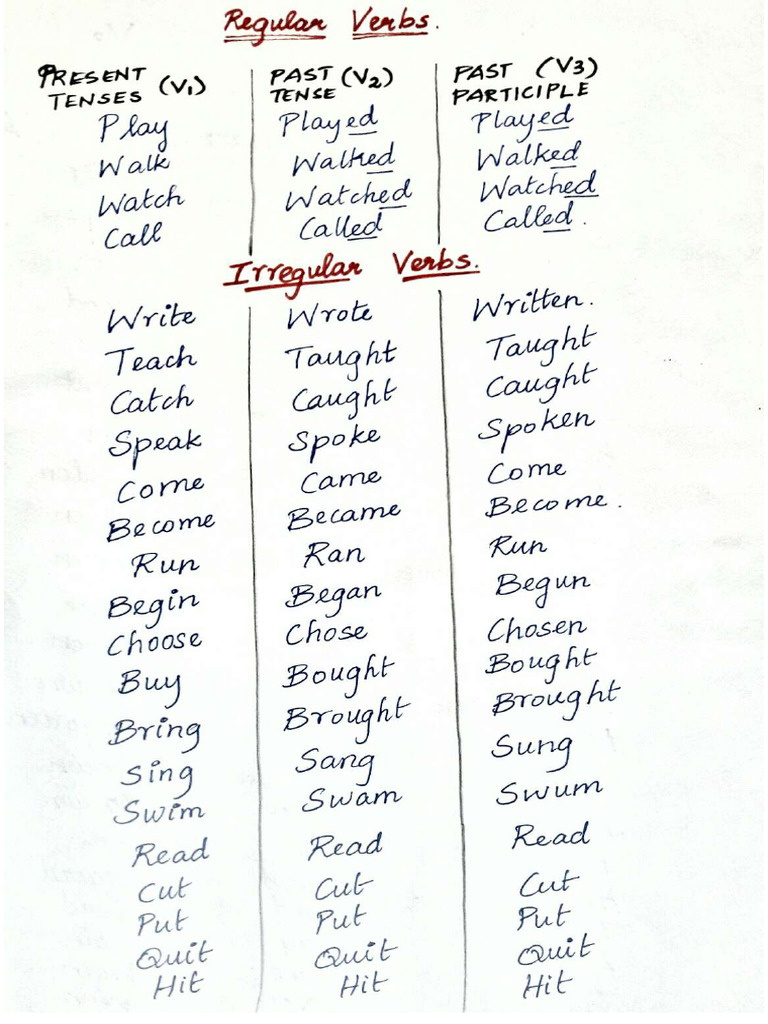 Regular Verbs.
PRESENT TENSES (V1) PAST TENSE (V2) PAST PARTICIPLE (V3)
Play Played Played
Walk Walked Walked
Watch Watched Watched
Call Called Called.
Irregular Verbs.
Write Wrote Written.
Teach Taught Taught
Catch Caught Caught
Speak Spoke Spoken
Come Came Come
Become Became Become.
Run Ran Run
Begin Began Begun
Choose Chose Chosen
Buy Bought Bought
Bring Brought Brought
Sing Sang Sung
Swim Swam Swum
Read Read Read
Cut Cut Cut
Put Put Put
Quit Quit Quit
Hit Hit Hit